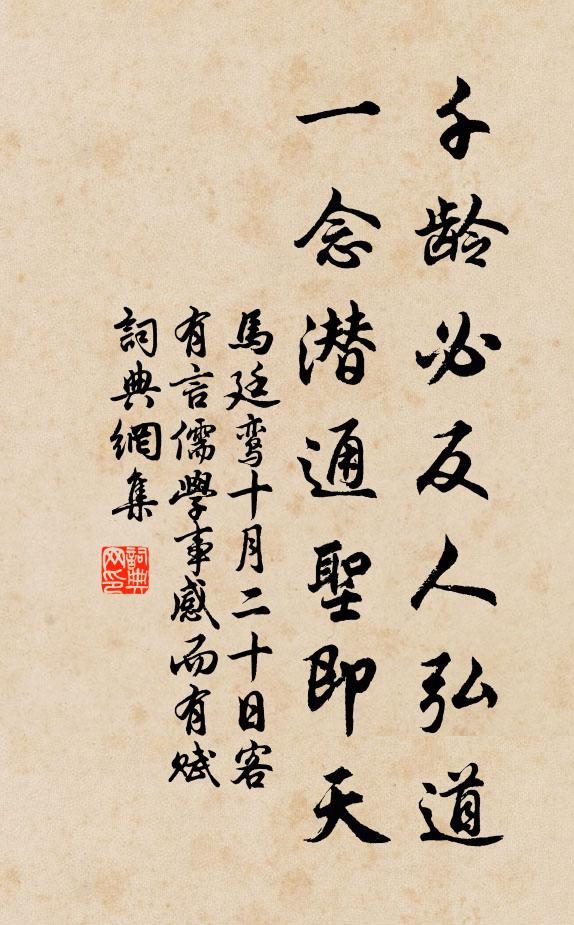 千龄必反人弘道
一念潜通聖即天
馬廷鸾十月二十日客
有言儒學事感而有赋
詞典網集
詞典
网印